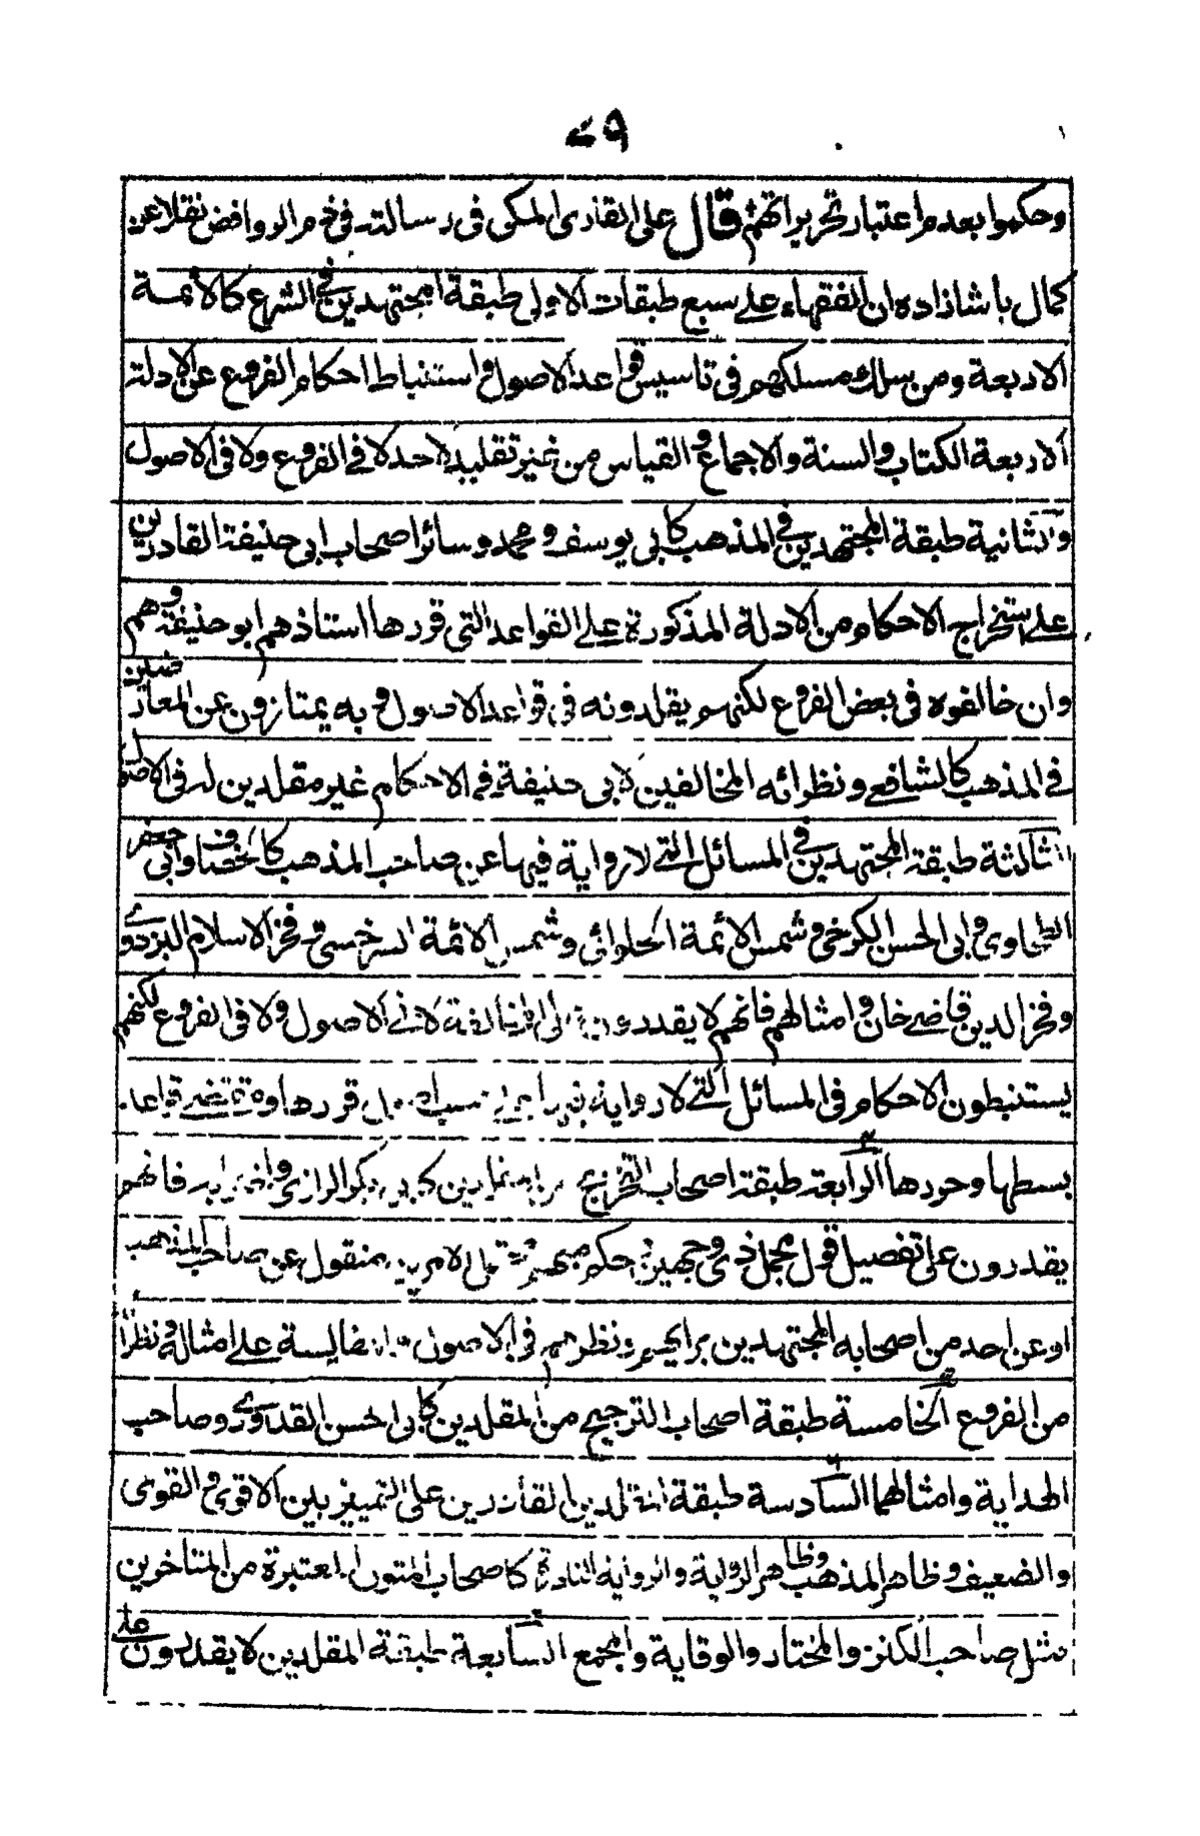 ٧٩
وحكموا بعدم اعتبار تحريراتهم قال على القارى المكى فى رسالته فى ذم الروافض نقلا عن
كمال باشا زاده ان الفقهاء على سبع طبقات الاولى طبقة المجتهدين فى الشرع كالأئمة
الاربعة ومن سلك مسلكهم فى تاسيس قواعد الاصول واستنباط احكام الفروع عن الادلة
الاربعة الكتاب والسنة والاجماع والقياس من غير تقليد لاحد لا فى الفروع ولا فى الاصول
والثانية طبقة المجتهدين فى المذهب كابى يوسف ومحمد وسائر اصحاب ابى حنيفة القادرين
على استخراج الاحكام من الادلة المذكورة على القواعد التى قررها استاذهم ابو حنيفة وهم
وان خالفوه فى بعض الفروع لكنهم يقلدونه فى قواعد الاصول وبه يمتازون عن المعارضين
فى المذهب كالشافعى ونظرائه المخالفين لابى حنيفة فى الاحكام غير مقلدين له فى الاصول
الثالثة طبقة المجتهدين فى المسائل التى لا رواية فيها عن صاحب المذهب كالخصاف وابى جعفر
الطحاوى وابى الحسن الكرخى وشمس الائمة الحلوائى وشمس الائمة السرخسى وفخر الاسلام البزدوى
وفخر الدين قاضى خان وامثالهم فانهم لا يقدرون على المخالفة لا فى الاصول ولا فى الفروع لكنهم
يستنبطون الاحكام فى المسائل التى لا رواية فيها حسب اصول قررها ومقتضى قواعد
بسطها وحررها الرابعة طبقة اصحاب التخريج من المقلدين كابى بكر الرازى واضرابه فانهم
يقدرون على تفصيل قول مجمل ذى وجهين حكم مبهم محتمل لامرين منقول عن صاحب المذهب
او عن احد من اصحابه المجتهدين برايهم ونظرهم فى الاصول والمقايسة على امثاله ونظرائه
من الفروع الخامسة طبقة اصحاب الترجيح من المقلدين كابى الحسن القدورى وصاحب
الهداية وامثالهما السادسة طبقة المقلدين القادرين على التمييز بين الاقوى والقوى
والضعيف وظاهر المذهب وظاهر الرواية والرواية النادرة كاصحاب المتون المعتبرة من المتاخرين
مثل صاحب الكنز والمختار والوقاية والمجمع السابعة طبقة المقلدين لا يقدرون على